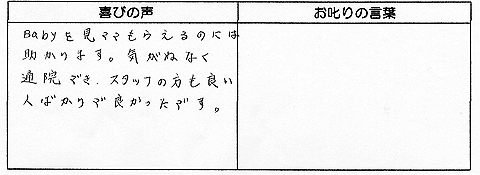 喜びの声 お叱りの言葉
Babyを見ママもらえるのには
助かります。気がねなく
通院でき、スタッフの方も良い
人ばかりで良かったです。